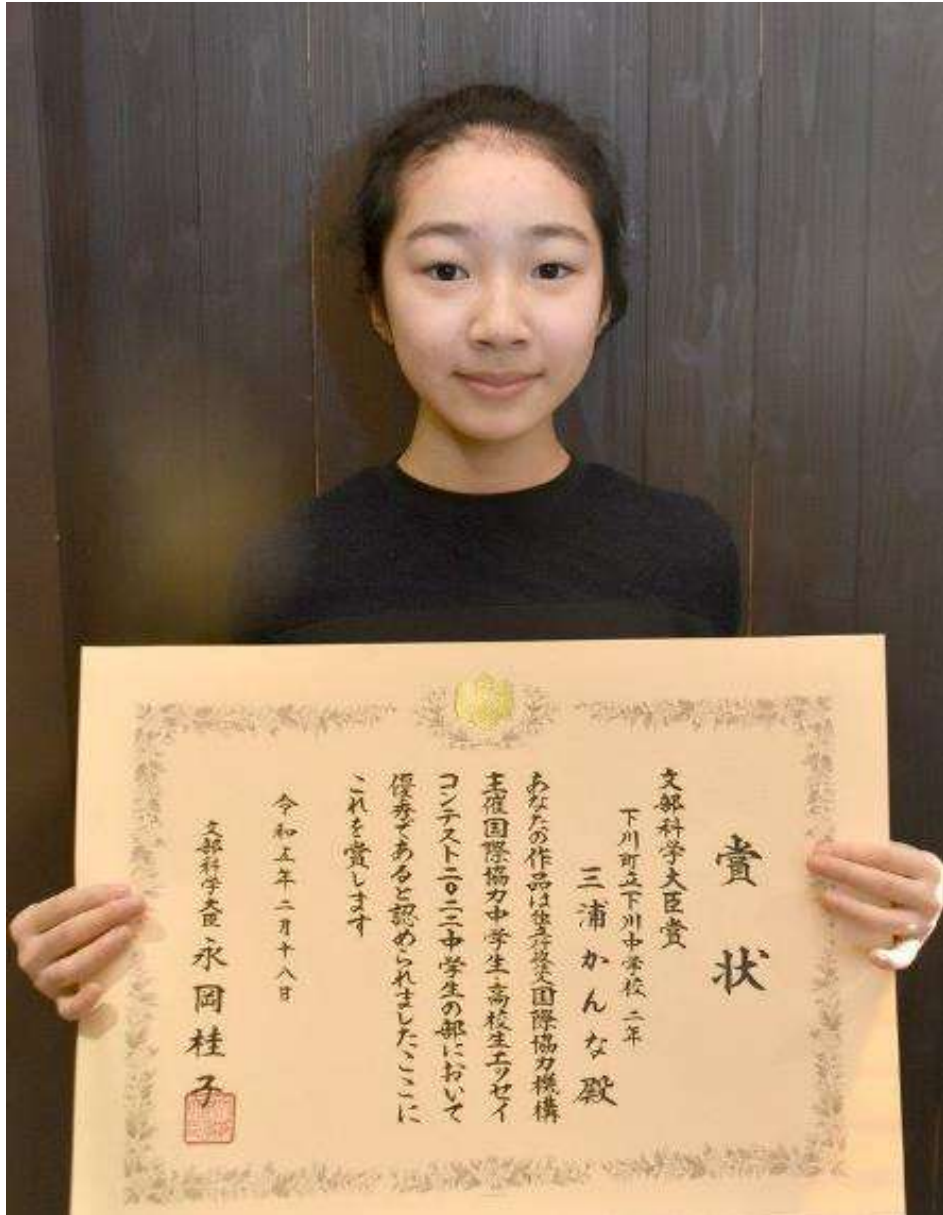 賞状
文部科学大臣賞
下川町立下川中学校 二年
三浦かんな殿
あなたの作品は独立行政法人国際協力機構
主催国際協力中学生・高校生エッセイ
コンテスト二〇二二中学生の部において
優秀であると認められましたここに
これを賞します
令和五年二月十八日
文部科学大臣 永岡桂子